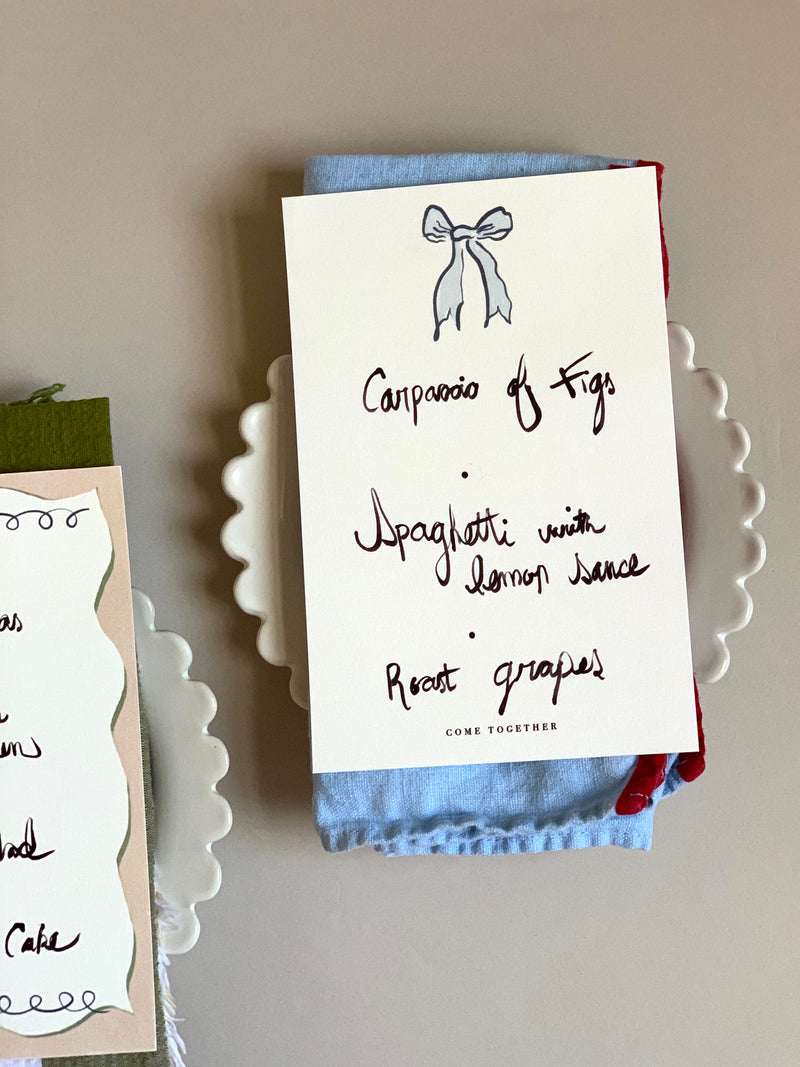 Carpaccio of Figs
•
Spaghetti with
lemon sauce
•
Roast grapes
COME TOGETHER
Cake